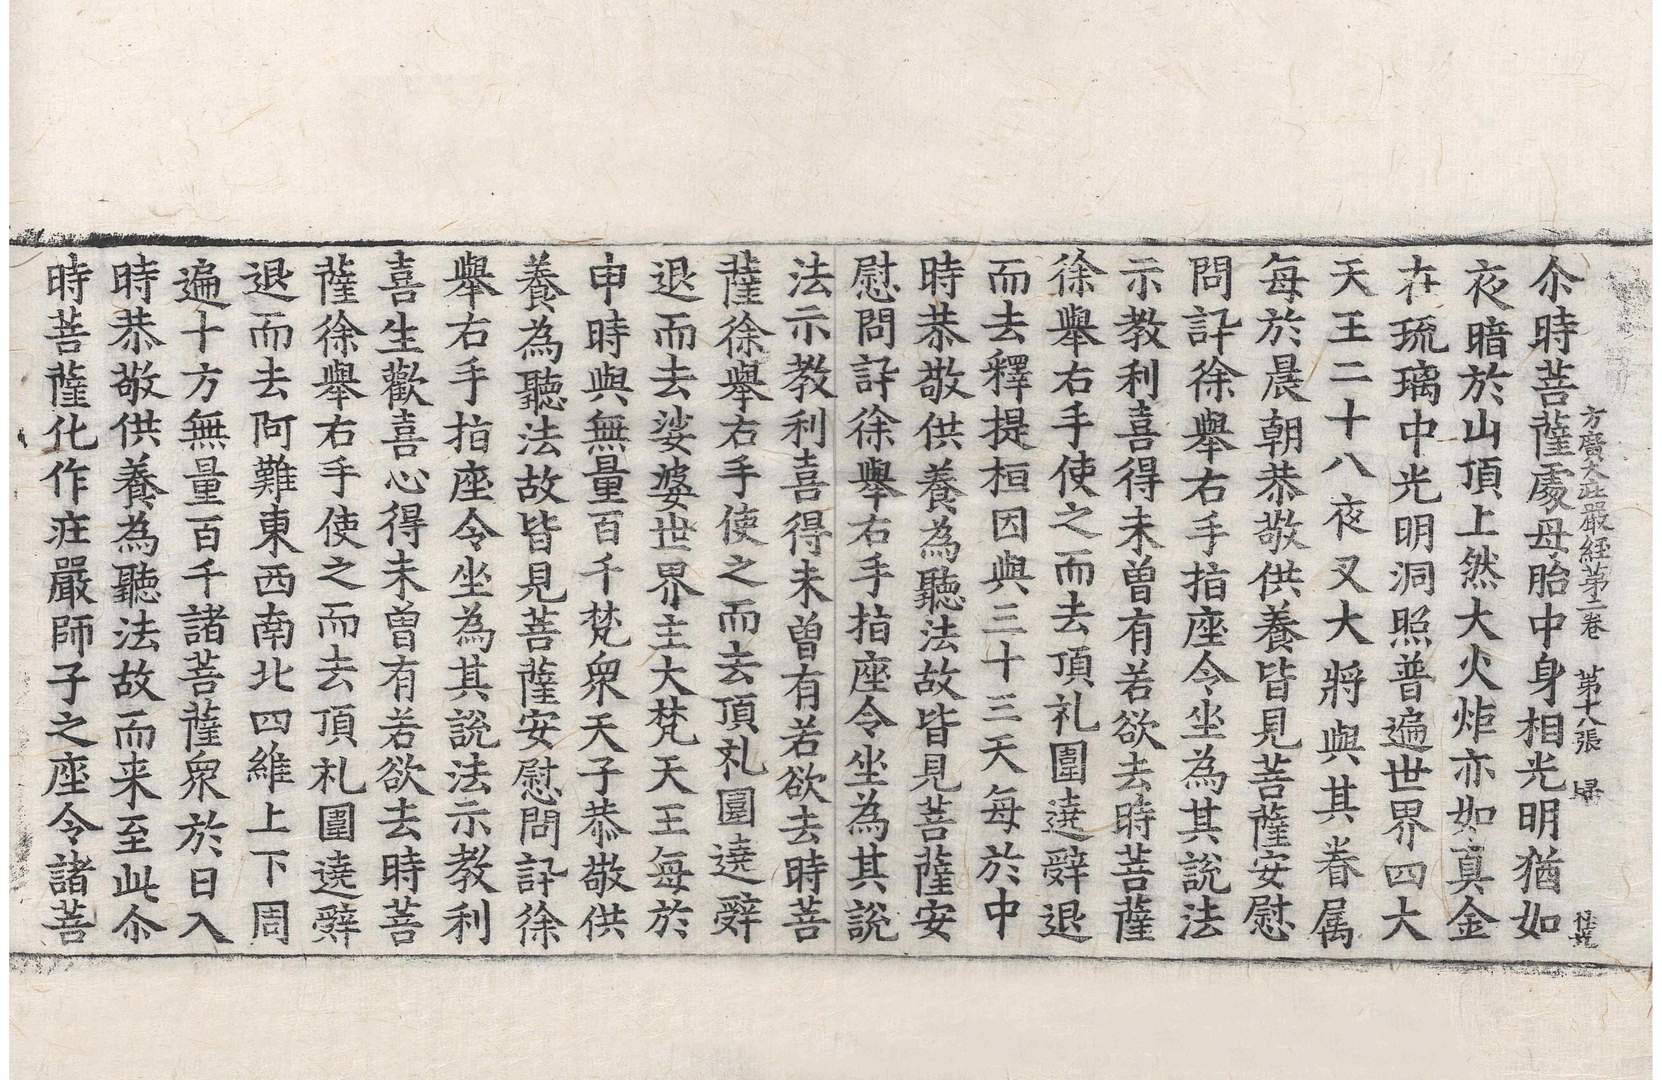 方廣大莊嚴經第二卷 第十八張 歸
尒時菩薩處母胎中身相光明猶如
夜暗於山頂上然大火炬亦如真金
在琉璃中光明洞照普遍世界四大
天王二十八夜叉大將與其眷属
每於晨朝恭敬供養皆見菩薩安慰
問訊徐舉右手指座令坐為其說法
示教利喜得未曽有若欲去時菩薩
徐舉右手使之而去頂礼圍遶辭退
而去釋提桓因與三十三天每於中
時恭敬供養為聽法故皆見菩薩安
慰問訊徐舉右手指座令坐為其說
法示教利喜得未曽有若欲去時菩
薩徐舉右手使之而去頂礼圍遶辭
退而去娑婆世界主大梵天王每於
申時與無量百千梵衆天子恭敬供
養為聽法故皆見菩薩安慰問訊徐
舉右手指座令坐為其說法示教利
喜生歡喜心得未曽有若欲去時菩
薩徐舉右手使之而去頂礼圍遶辭
退而去阿難東西南北四維上下周
遍十方無量百千諸菩薩衆於日入
時恭敬供養為聽法故而来至此尒
時菩薩化作莊嚴師子之座令諸菩